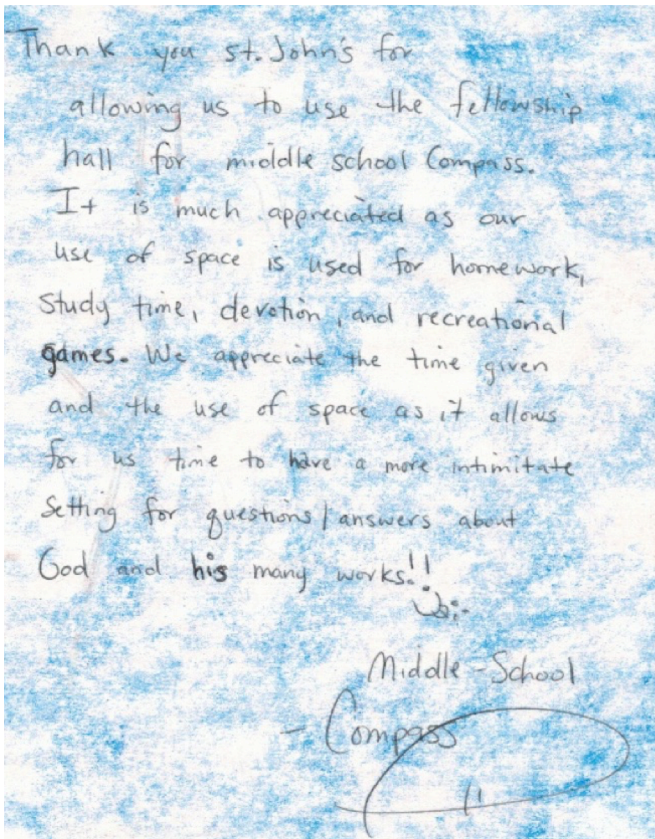 Thank you st. John's for
allowing us to use the fellowship
hall for middle school Compass.
It is much appreciated as our
use of space is used for homework,
Study time, devotion, and recreational
games. We appreciate the time given
and the use of space as it allows
for us time to have a more intimitate
Setting for questions/answers about
God and his many works!!
Middle-School
- Compass